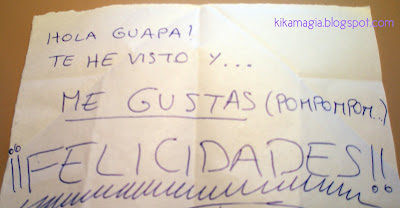 kikamagia.blogspot.com
HOLA GUAPA!
TE HE VISTO Y...
ME GUSTAS (POMPOMPOM...)
¡¡FELICIDADES!!